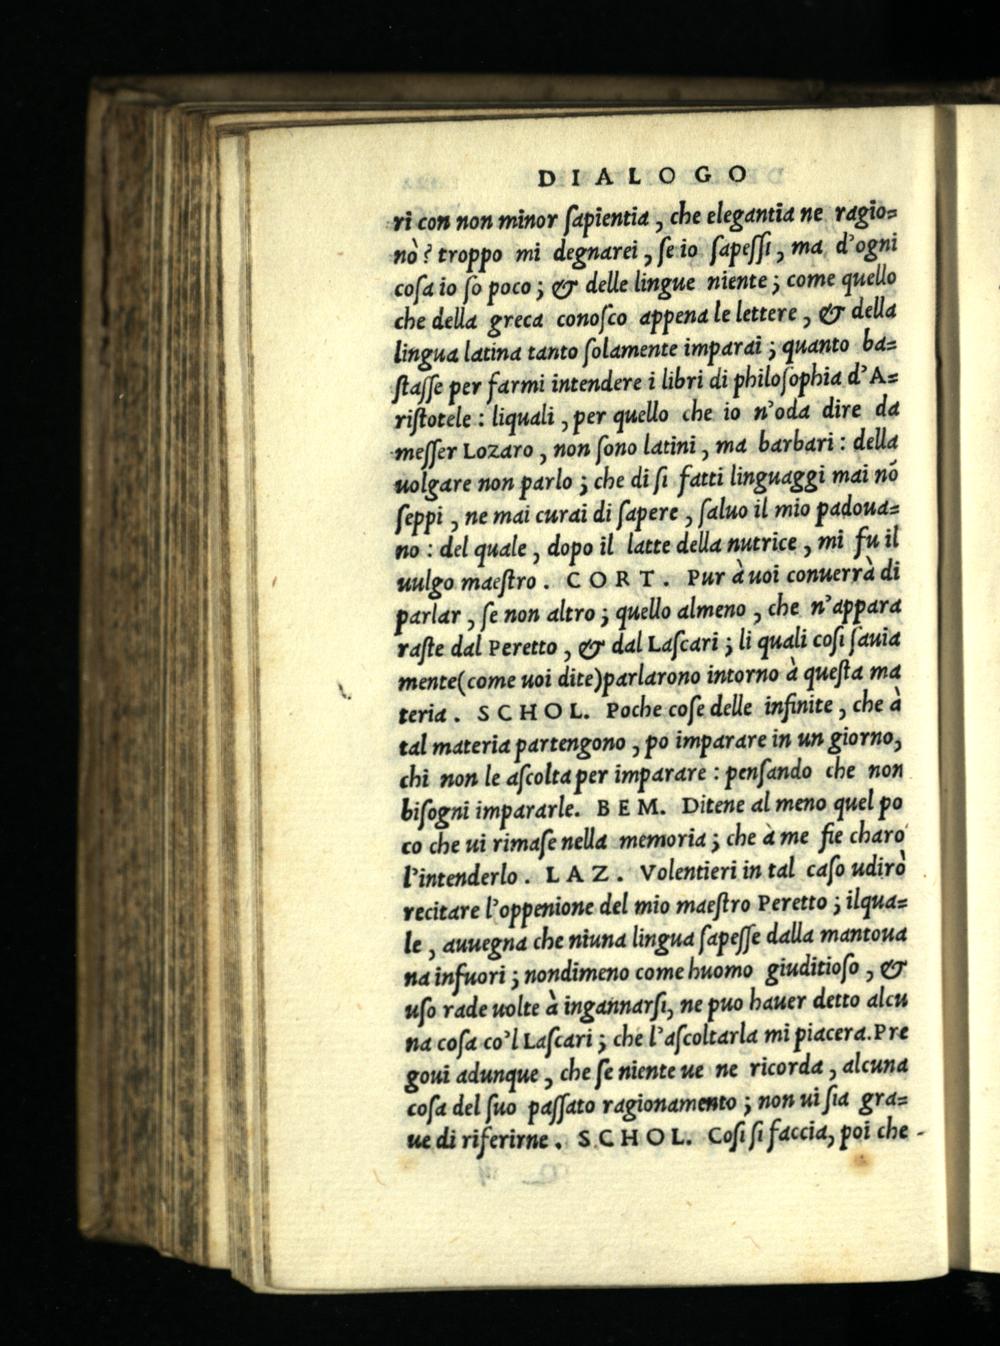 DIALOGO
ri con non minor ſapientia, che elegantia ne ragio=
nò? troppo mi degnarei, ſe io ſapeſſi, ma d'ogni
coſa io ſo poco; & delle lingue niente; come quello
che della greca conoſco appena le lettere, & della
lingua latina tanto ſolamente imparai; quanto ba=
ſtaſſe per farmi intendere i libri di philoſophia d'A=
riſtotele: liquali, per quello che io n'oda dire da
meſſer Lozaro, non ſono latini, ma barbari: della
uolgare non parlo; che di ſi fatti linguaggi mai nõ
ſeppi, ne mai curai di ſapere, ſaluo il mio padoua=
no: del quale, dopo il latte della nutrice, mi fu il
uulgo maeſtro. CORT. Pur à uoi conuerrà di
parlar, ſe non altro; quello almeno, che n'appara
raſte dal Peretto, & dal Laſcari; li quali coſi ſauia
mente(come uoi dite)parlarono intorno à queſta ma
teria. SCHOL. Poche coſe delle infinite, che à
tal materia partengono, po imparare in un giorno,
chi non le aſcolta per imparare: penſando che non
biſogni impararle. BEM. Ditene al meno quel po
co che ui rimaſe nella memoria; che à me fie charo
l'intenderlo. LAZ. Volentieri in tal caſo udirò
recitare l'oppenione del mio maeſtro Peretto; ilqua=
le, auuegna che niuna lingua ſapeſſe dalla mantoua
na infuori; nondimeno come huomo giuditioſo, &
uſo rade uolte à ingannarſi, ne puo hauer detto alcu
na coſa co'l Laſcari; che l'aſcoltarla mi piacera. Pre
goui adunque, che ſe niente ue ne ricorda, alcuna
coſa del ſuo paſſato ragionamento; non ui ſia gra=
ue di riferirne. SCHOL. Coſi ſi faccia, poi che